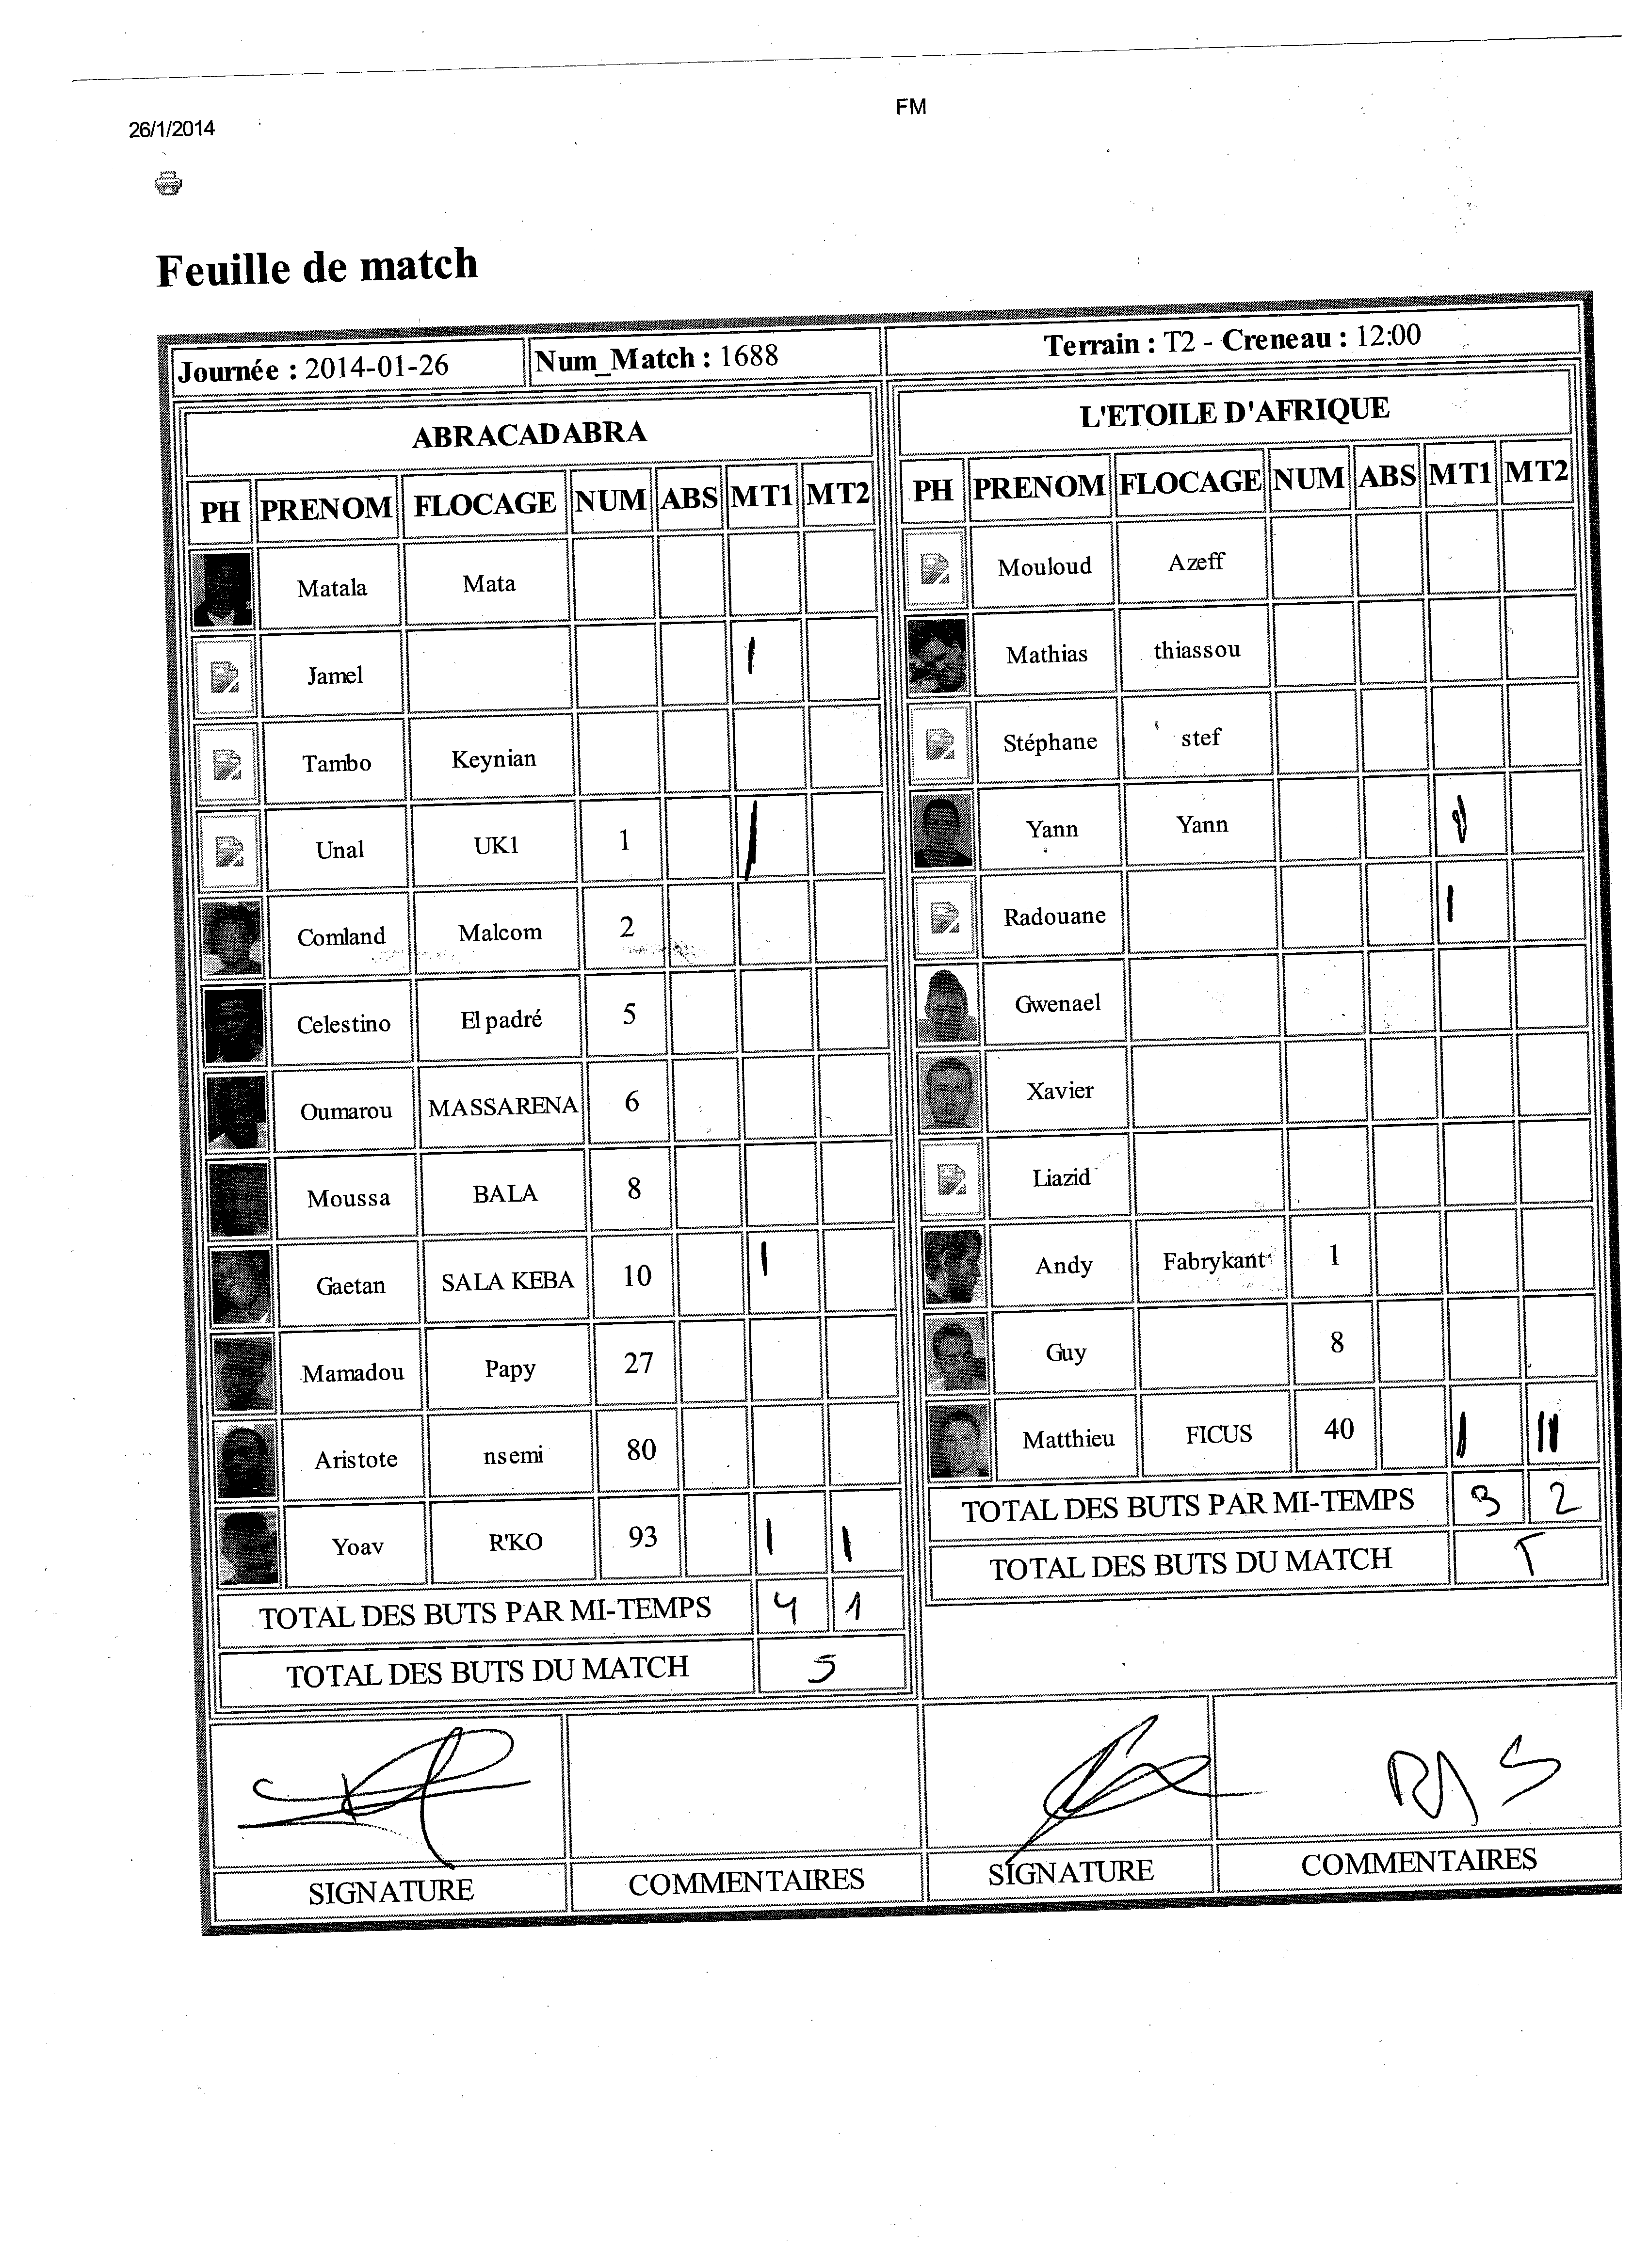 26/1/2014
FM
Feuille de match
Journée : 2014-01-26 Num_Match : 1688 Terrain : T2 - Creneau : 12:00
ABRACADABRA
PH PRENOM FLOCAGE NUM ABS MT1 MT2
Matala Mata
Jamel I
Tambo Keynian
Unal UK1 1 I
Comland Malcom 2
Celestino El padré 5
Oumarou MASSARENA 6
Moussa BALA 8
Gaetan SALA KEBA 10 I
Mamadou Papy 27
Aristote nsemi 80
Yoav R'KO 93 I I
TOTAL DES BUTS PAR MI-TEMPS 4 1
TOTAL DES BUTS DU MATCH 5
SIGNATURE COMMENTAIRES
L'ETOILE D'AFRIQUE
PH PRENOM FLOCAGE NUM ABS MT1 MT2
Mouloud Azeff
Mathias thiassou
Stéphane stef
Yann Yann
Radouane I
Gwenael
Xavier
Liazid
Andy Fabrykant 1
Guy 8
Matthieu FICUS 40 I II
TOTAL DES BUTS PAR MI-TEMPS 3 2
TOTAL DES BUTS DU MATCH 5
RAS
SIGNATURE COMMENTAIRES